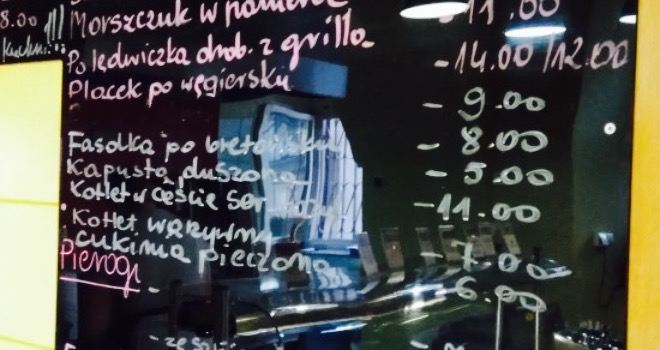 8.00 !!!
Morszczuk w -11.00
Polędwiczka drob. z grilla -14.00/12.00
Placek po węgiersku - 9.00
Fasolka po bretońsku - 8.00
Kapusta duszona - 5.00
Kotlet w cęście ser -11.00
Kotlet warzywny - 7.00
cukinia pieczona 6.00
Pierogi
-